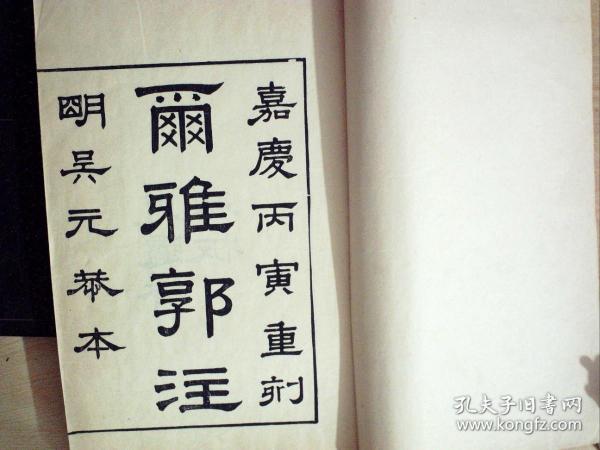 嘉慶丙寅重刻
爾雅郭注
明吴元恭本
孔夫子旧书网
www.kongfz.com